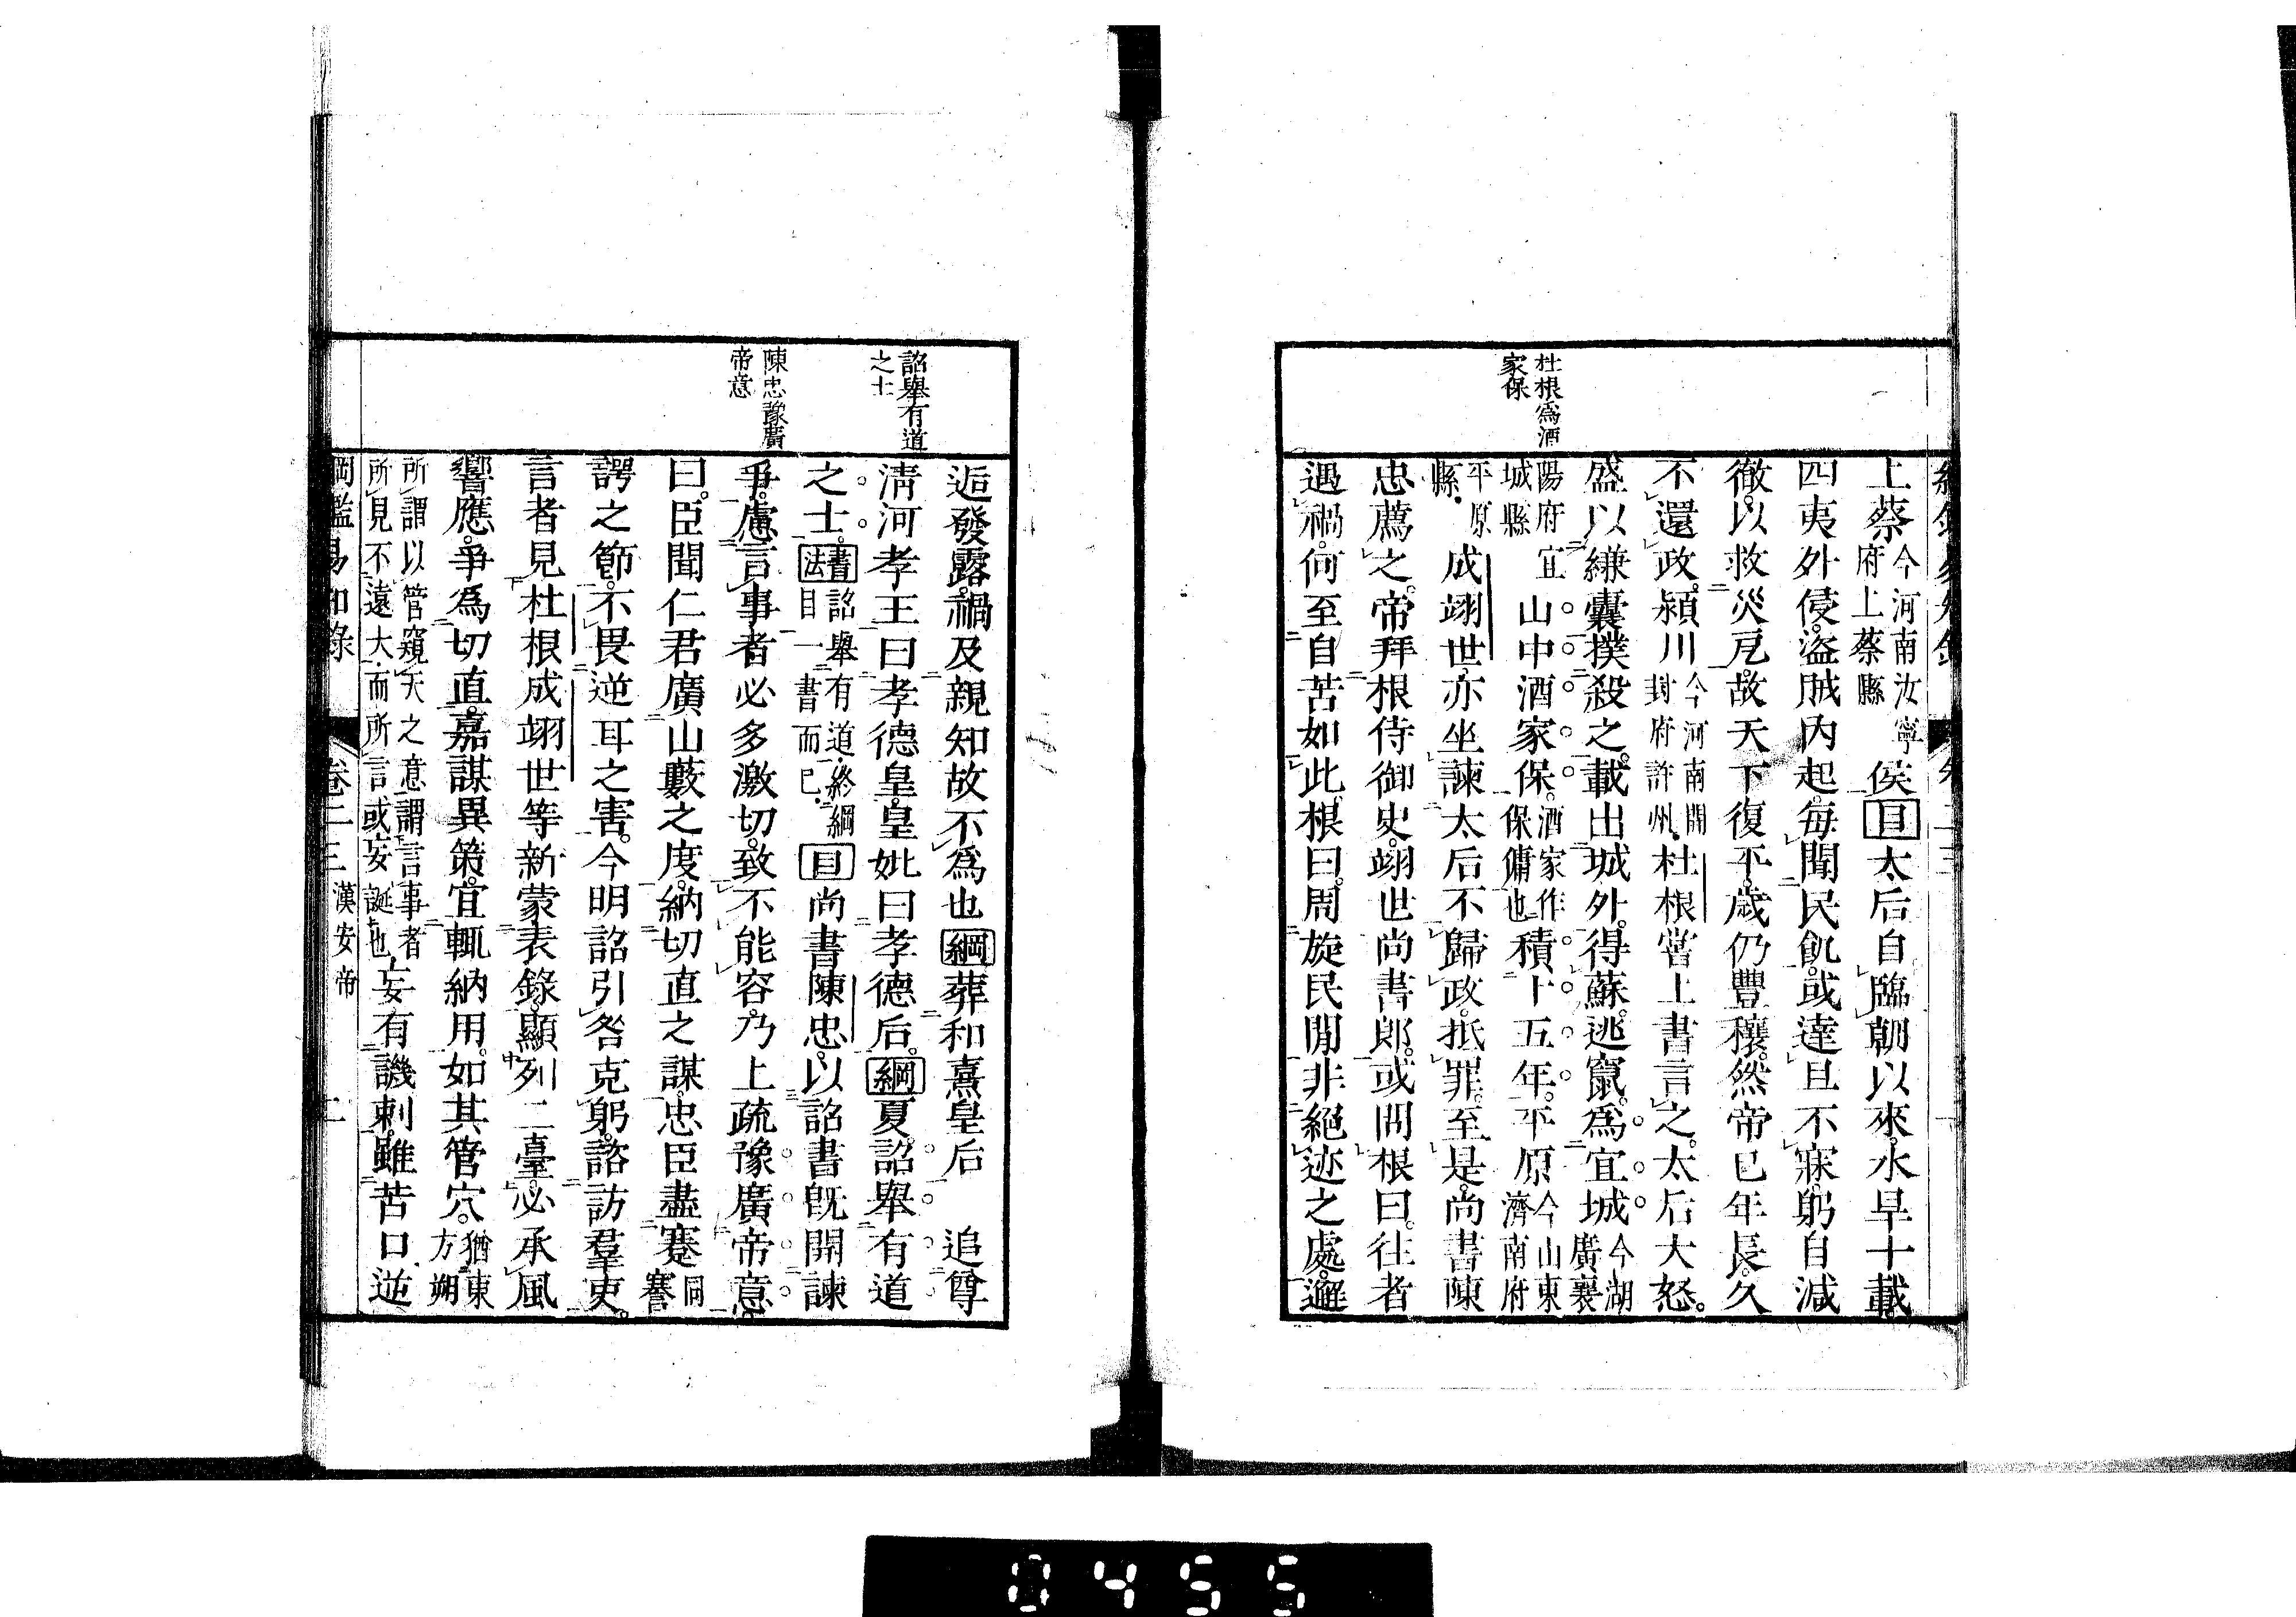 杜根爲酒
家保
上蔡今河南汝寧府上蔡縣侯目太后自臨朝以來水旱十載
四夷外侵盜賊內起每聞民飢或達旦不寐躬自減
徹以救災戹故天下復平歲仍豐穰然帝已年長久
不還政潁川今河南開封府許州杜根嘗上書言之太后大怒
盛以縑囊撲殺之載出城外得蘇逃竄爲宜城今湖廣襄
陽府宜城縣山中酒家保酒家作保傭也積十五年平原今山東濟南府
平原縣成翊世亦坐諫太后不歸政抵罪至是尚書陳
忠薦之帝拜根侍御史翊世尚書郎或問根曰往者
遇禍何至自苦如此根曰周旋民間非絕迹之處邂
詔舉有道
之士
陳忠豫廣
帝意
逅發露禍及親知故不爲也綱葬和熹皇后 追尊
清河孝王曰孝德皇皇妣曰孝德后綱夏詔舉有道
之士書法詔舉有道終綱目一書而已目尚書陳忠以詔書旣開諫
爭慮言事者必多激切致不能容乃上疏豫廣帝意
曰臣聞仁君廣山藪之度納切直之謀忠臣盡蹇同謇
諤之節不畏逆耳之害今明詔引咎克躬諮訪羣吏
言者見杜根成翊世等新蒙表錄顯列二臺必承風
響應爭爲切直嘉謀異策宜輒納用如其管穴猶東方朔
所謂以管窺天之意謂言事者所見不遠大而所言或妄誕也妄有譏刺雖苦口逆
綱鑑易知錄 卷二三 漢安帝 二
0455